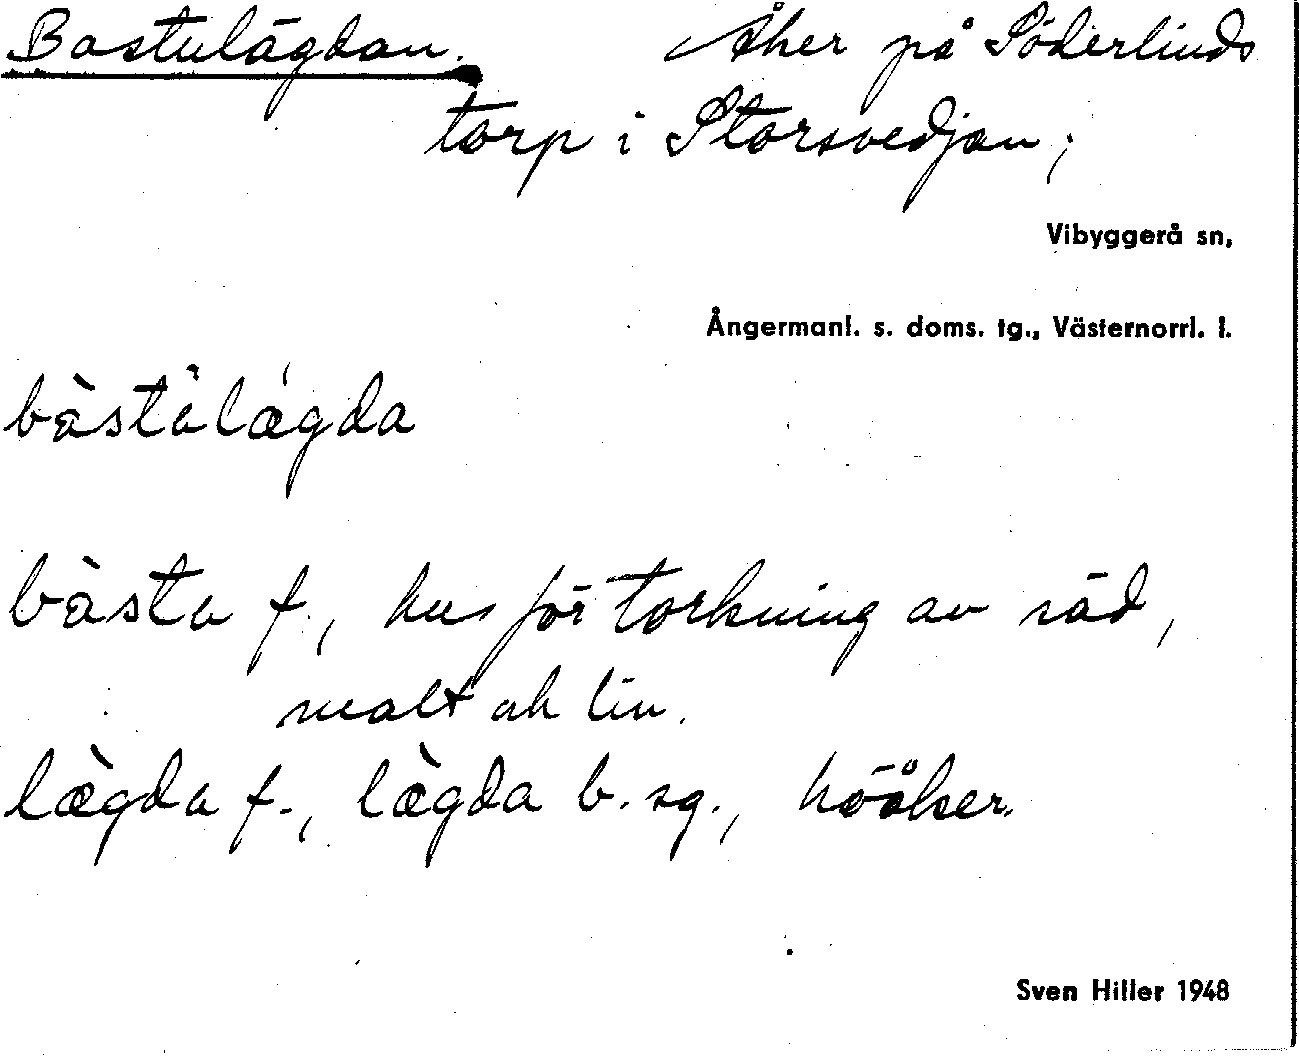 Bastulägdan. Åker på Söderlinds
torp i Storsvedjan;
Vibyggerå sn,
Ångermanl. s. doms. tg., Västernorrl. l.
bàstålǽgda
bàsta f., hus för torkning av säd,
malt och lin.
læ̀gda f., læ̀gda b. sg., höåker.
Sven Hiller 1948